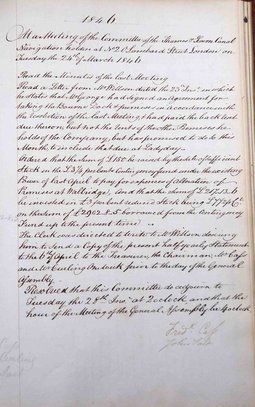 1846
At a Meeting of the Committee of the Thames & Severn Canal
Navigation holden at No 2 Lombard Street London on
Tuesday the 24th of March 1846
Read the Minutes of the last Meeting
Read a Letter from Mr Wilson dated the 23d Inst in which
he States that Mr George had signed an Agreement for
taking the Bourne Lock & premises in accordance with
the Resolution of the last Meeting & had paid the back rent
due thereon but not the Rent of the other Premises he
holds of the Company, but has promised to do it this
Month, to include that due at Ladyday.
Ordered that the Sum of £180 be raised by the sale of sufficient
Stock in the £3¼ per Cents Contingency fund under the existing
Power of last April to pay for expences of alteration of
Premises at Walbridge, and that the Sum of
be invested in £3 per Cent reduced Stock being
on the Sum of £2902.8.5 borrowed from the Contingency
Fund up to the present time
The Clerk was directed to write to Mr Wilson desiring
him to send a Copy of the present half yearly Statement
to the 6th of April to the Treasurer, the Chairman, Mr Cass
and Mr Carling One week prior to the day of the General
Assembly.
Resolved that this Committee do adjourn to
Tuesday the 28th at 2 oclock, and that the
hour of the Meeting of the General Assembly be 3 oclock
Fredk Cass
John